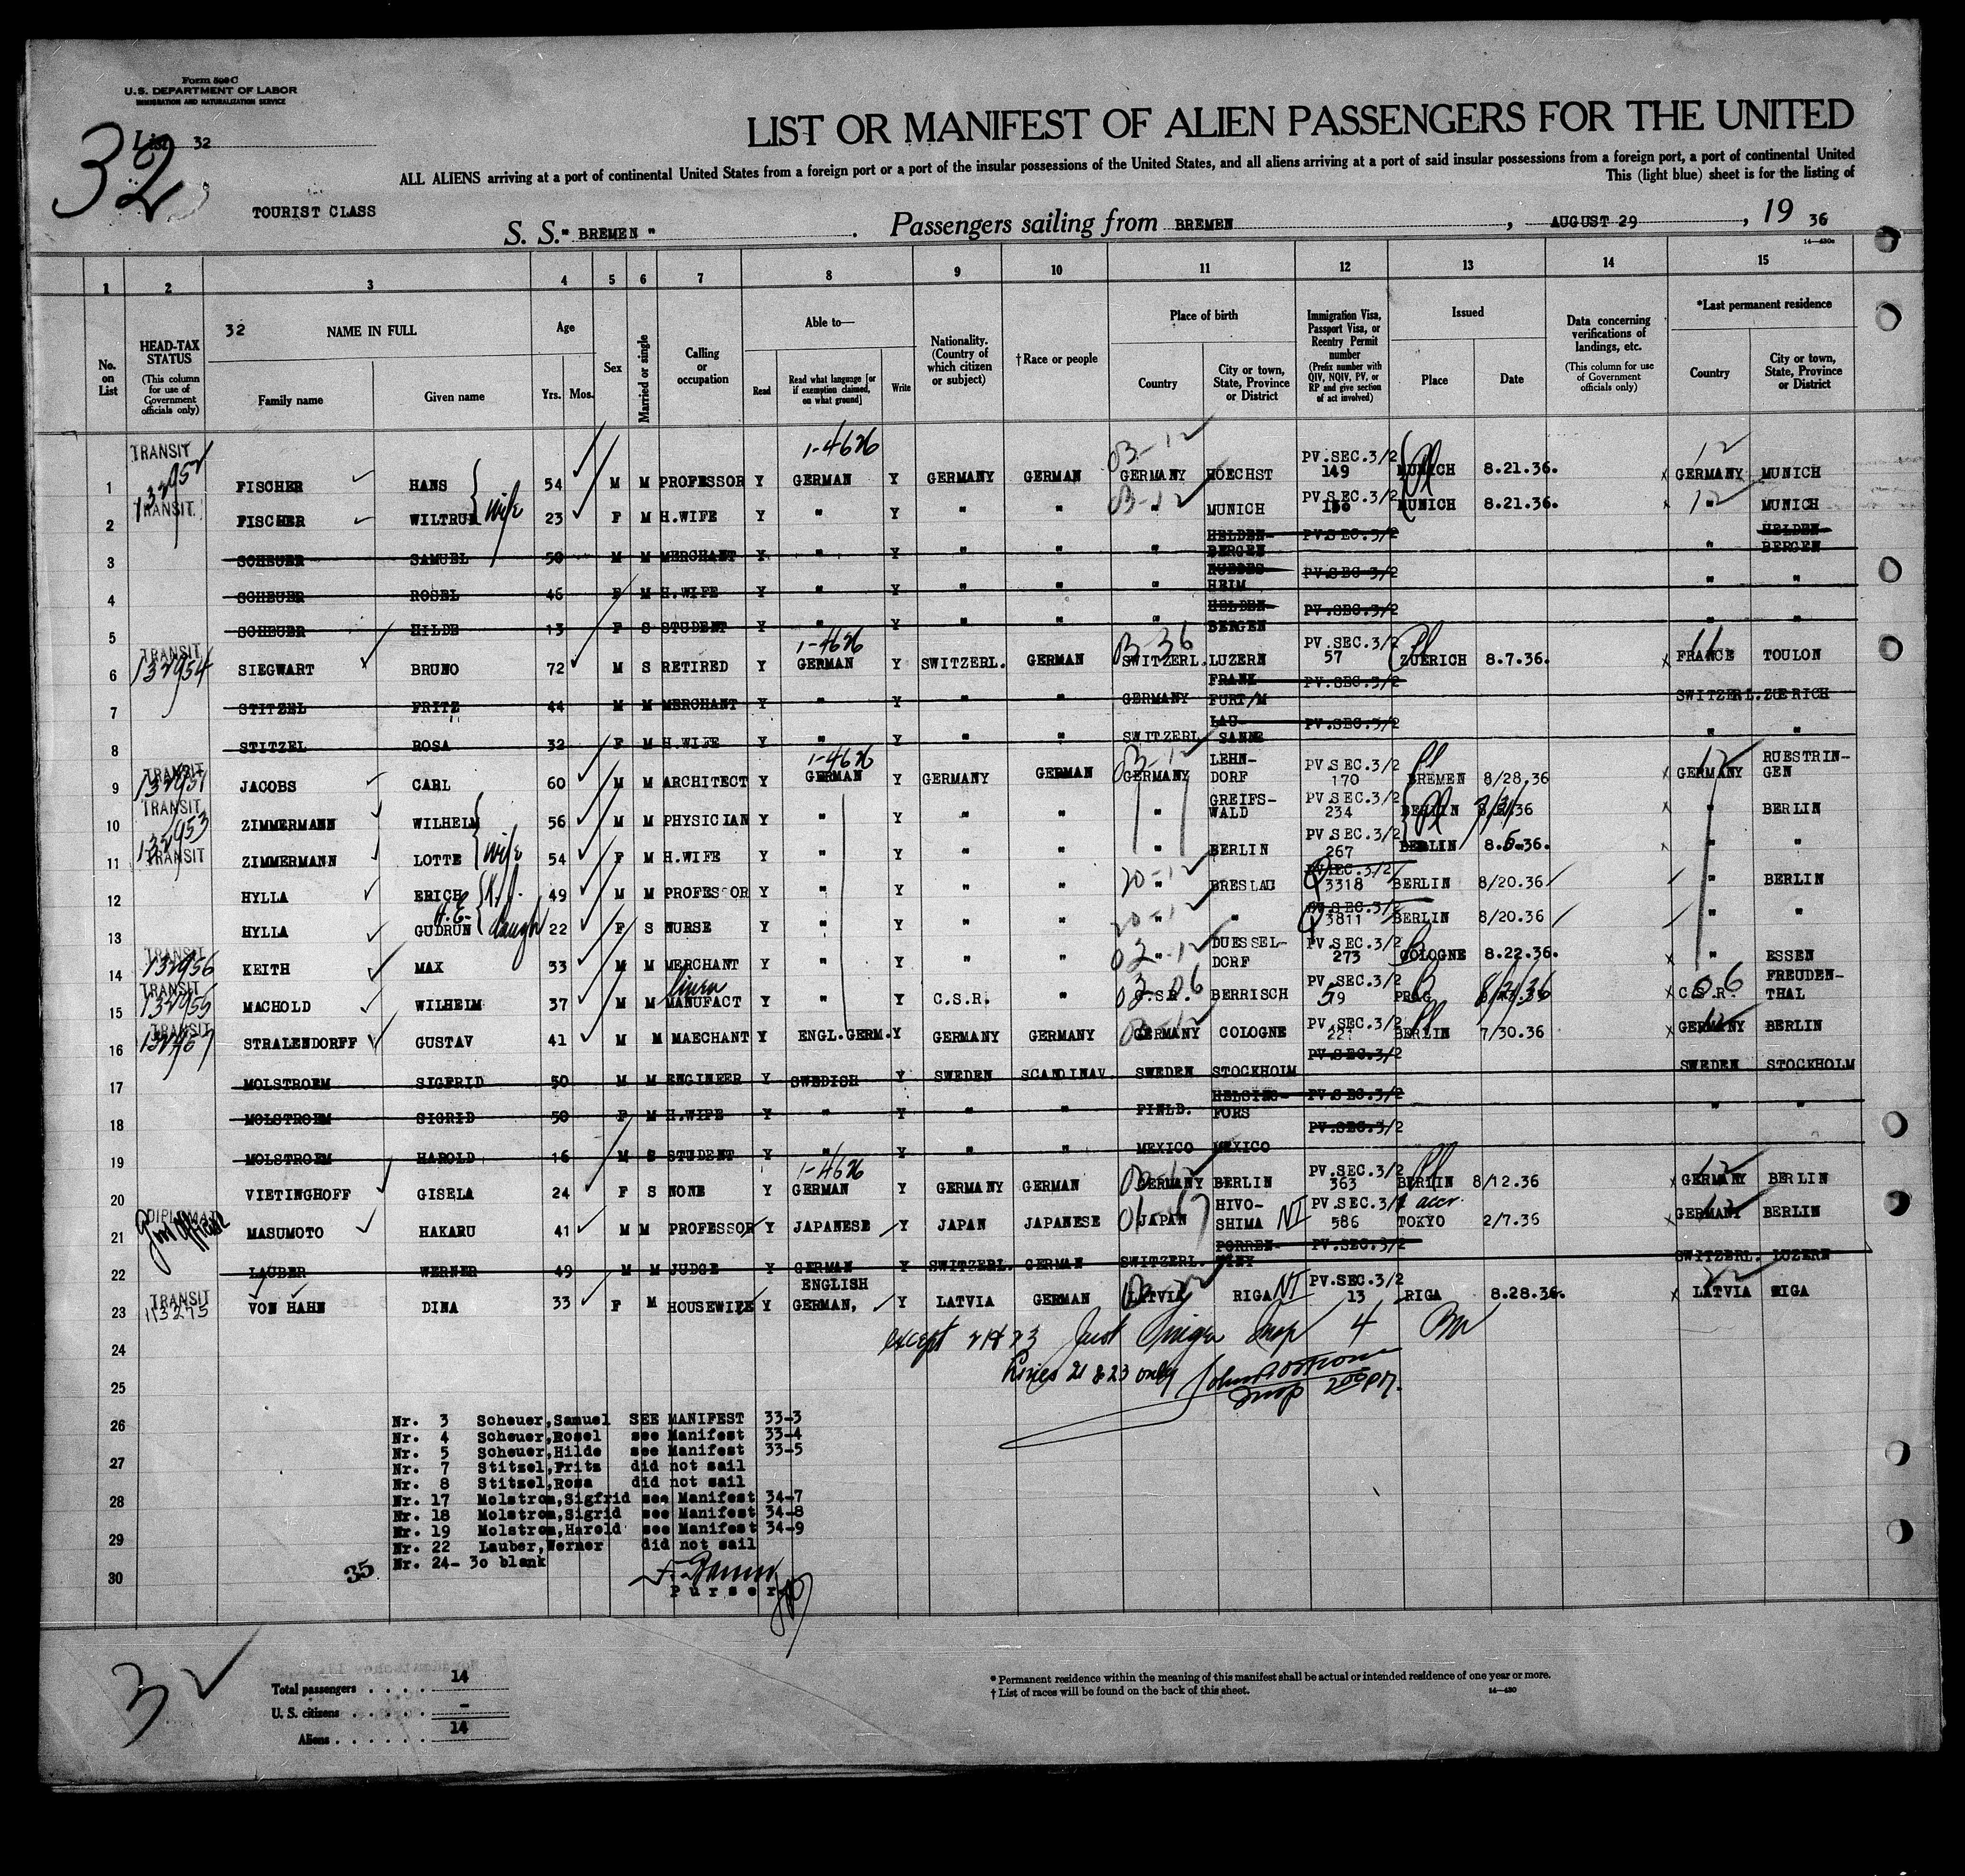 Form 500 C
U.S. DEPARTMENT OF LABOR
IMMIGRATION AND NATURALIZATION SERVICE
List 32
32
LIST OR MANIFEST OF ALIEN PASSENGERS FOR THE UNITED
ALL ALIENS arriving at a port of continental United States from a foreign port or a port of the insular possessions of the United States, and all aliens arriving at a port of said insular possessions from a foreign port, a port of continental United
This (light blue) sheet is for the listing of
TOURIST CLASS
S. S. " BREMEN " . Passengers sailing from BREMEN , AUGUST 29 , 19 36
1 2 3 4 5 6 7 8 9 10 11 12 13 14 15
No. on List
HEAD-TAX STATUS (This column for use of Government officials only)
32 NAME IN FULL
Family name Given name
Age Yrs. Mos.
Sex
Married or single
Calling or occupation
Able to— Read Read what language [or if exemption claimed, on what ground] Write
Nationality. (Country of which citizen or subject)
† Race or people
Place of birth Country City or town, State, Province or District
Immigration Visa, Passport Visa, or Reentry Permit number (Prefix number with QIV, NQIV, PV, or RP and give section of act involved)
Issued Place Date
Data concerning verifications of landings, etc. (This column for use of Government officials only)
*Last permanent residence Country City or town, State, Province or District
1 TRANSIT FISCHER HANS 54 M M PROFESSOR Y GERMAN 1-4626 Y GERMANY GERMAN GERMANY HOECHST PV.SEC.3/2 149 MUNICH 8.21.36. GERMANY MUNICH
2 TRANSIT FISCHER WILTRUD wife 23 F M H.WIFE Y " Y " " " MUNICH PV.SEC.3/2 MUNICH 8.21.36. " MUNICH
3 SCHEUER SAMUEL 50 M M MERCHANT Y " Y " " " HELDEN-BERGEN PV.SEC.3/2 " HELDEN BERGEN
4 SCHEUER ROSEL 46 F M H.WIFE Y " Y " " " HEIM PV.SEC 3/2 " "
5 SCHEUER HILDE 13 F S STUDENT Y " Y " " " HELDEN-BERGEN PV.SEC.3/2 " "
6 TRANSIT 132954 SIEGWART BRUNO 72 M S RETIRED Y GERMAN 1-4626 Y SWITZERL. GERMAN SWITZERL. LUZERN PV.SEC.3/2 57 ZUERICH 8.7.36. FRANCE TOULON
7 STITZEL FRITZ 44 M M MERCHANT Y " Y " " GERMANY FRANK FURT/M PV.SEC.3/2 SWITZERL. ZUERICH
8 STITZEL ROSA 32 F M H.WIFE Y " Y " " SWITZERL LAU-SANNE PV.SEC.3/2 " "
9 TRANSIT 132951 JACOBS CARL 60 M M ARCHITECT Y GERMAN 1-4626 Y GERMANY GERMAN GERMANY LEHN-DORF PV SEC.3/2 170 BREMEN 8/28.36 GERMANY RUESTRIN-GEN
10 TRANSIT 132953 ZIMMERMANN WILHELM 56 M M PHYSICIAN Y " Y " " " GREIFS-WALD PV SEC.3/2 234 BERLIN 7/31/36 " BERLIN
11 TRANSIT ZIMMERMANN LOTTE wife 54 F M H.WIFE Y " Y " " " BERLIN PV.SEC.3/2 267 BERLIN 8.5.36. " "
12 HYLLA ERICH 49 M M PROFESSOR Y " Y " " 20-12 " BRESLAU 3318 BERLIN 8/20.36 " BERLIN
13 HYLLA GUDRUN daugh 22 F S NURSE Y " Y " " 20-12 " " 3811 BERLIN 8/20.36 " "
14 TRANSIT 132956 KEITH MAX 33 M M MERCHANT Y " Y " " " DUESSEL-DORF PV.SEC.3/2 273 COLOGNE 8.22.36. " ESSEN
15 TRANSIT 132955 MACHOLD WILHELM 37 M M linen MANUFACT Y " Y C.S.R. " C.S.R. BERRISCH PV.SEC.3/2 PRAG C.S.R. FREUDEN-THAL
16 TRANSIT STRALENDORFF GUSTAV 41 M M MAECHANT Y ENGL.GERM. Y GERMANY GERMANY GERMANY COLOGNE PV.SEC.3/2 BERLIN 7/30.36 GERMANY BERLIN
17 MOLSTROEM SIGFRID 50 M M ENGINEER Y SWEDISH Y SWEDEN SCANDINAV. SWEDEN STOCKHOLM PV.SEC.3/2 SWEDEN STOCKHOLM
18 MOLSTROEM SIGRID 50 F M H.WIFE Y " Y " " FINLD. HELSING-FORS PV.SEC.3/2 " "
19 MOLSTROEM HAROLD 16 M S STUDENT Y " Y " " MEXICO MEXICO PV.SEC.3/2
20 VIETINGHOFF GISELA 24 F S NONE Y GERMAN 1-4626 Y GERMANY GERMAN GERMANY BERLIN PV.SEC.3/2 363 BERLIN 8/12.36 GERMANY BERLIN
21 DIPLOMAT MASUMOTO HAKARU 41 M M PROFESSOR Y JAPANESE Y JAPAN JAPANESE JAPAN HIVO-SHIMA NI PV.SEC.3/1 accr. 586 TOKYO 2/7.36 GERMANY BERLIN
22 LAUBER WERNER 49 M M JUDGE Y GERMAN Y SWITZERL. GERMAN SWITZERL. PORREN- PV.SEC.3/2 SWITZERL. LUZERN
23 TRANSIT 113275 VON HAHN DINA 33 F M HOUSEWIFE Y ENGLISH GERMAN, Y LATVIA GERMAN LATVIA RIGA NI PV.SEC.3/2 13 RIGA 8.28.36. LATVIA RIGA
24 except 21 & 23
25 Lines 21 & 23 only
26
27
28
29
30
Nr. 3 Scheuer,Samuel SEE MANIFEST 33-3
Nr. 4 Scheuer,Rosel see Manifest 33-4
Nr. 5 Scheuer,Hilde see Manifest 33-5
Nr. 7 Stitzel,Fritz did not sail
Nr. 8 Stitzel,Rosa did not sail
Nr. 17 Molstrom,Sigfrid see Manifest 34-7
Nr. 18 Molstrom,Sigrid see Manifest 34-8
Nr. 19 Molstrom,Harold see Manifest 34-9
Nr. 22 Lauber,Werner did not sail
Nr. 24- 30 blank
35
Purser
32
Total passengers . . . . 14
U. S. citizens . . . . . -
Aliens . . . . . . 14
* Permanent residence within the meaning of this manifest shall be actual or intended residence of one year or more.
† List of races will be found on the back of this sheet.
14—430